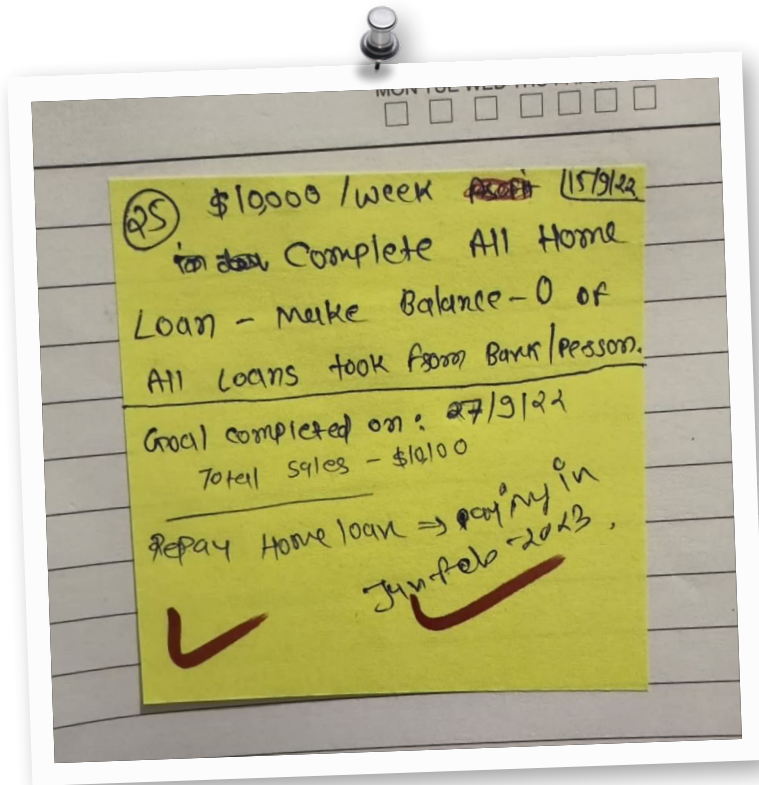 MON TUE WED
25 $10,000 /week 15/9/22
Complete All Home
Loan - Make Balance - 0 of
All Loans took from Bank/Person.
Goal completed on: 27/9/22
Total Sales - $10,100
Repay Home loan ⇒ paying in
Jan Feb - 2023.